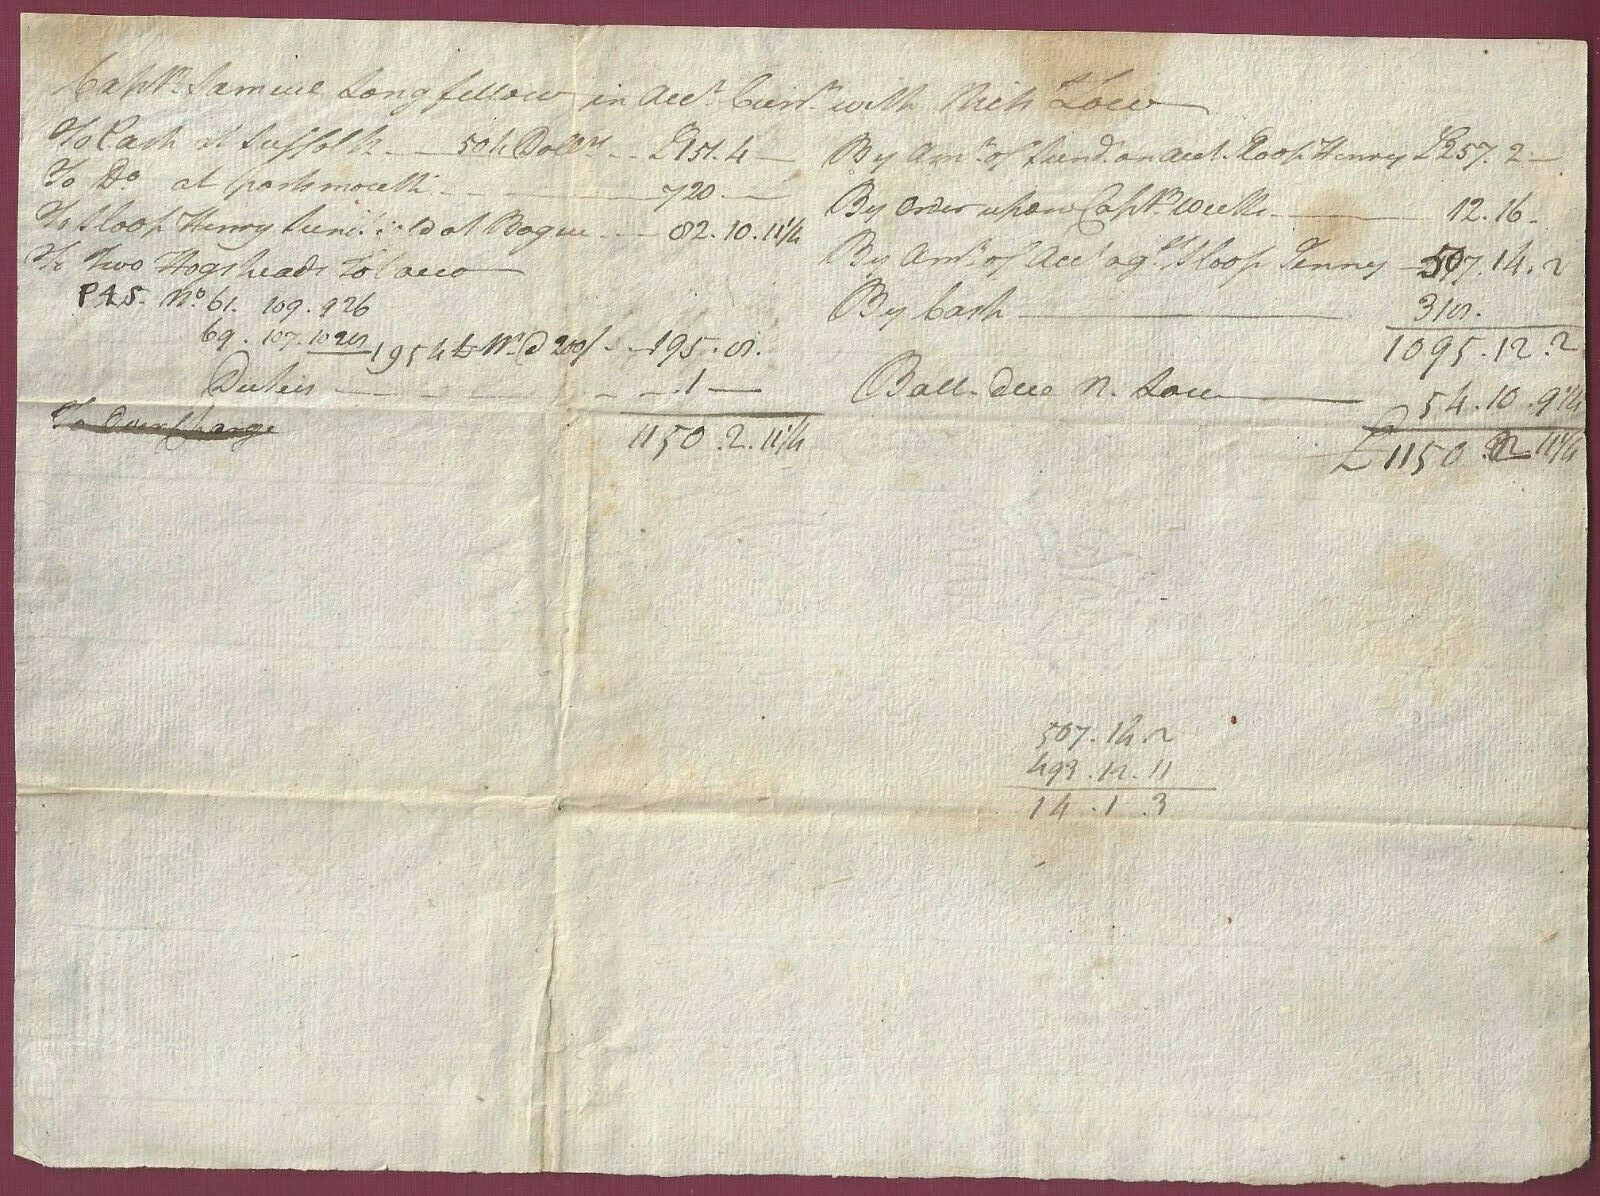 Capt. Samuel Longfellow in Acct. Curr. with Nich. Low
To Cash at Suffolk 504 Dollrs £151.4
To Do at Portsmouth 720
To Sloop Henry at Bogue 82.10.11¼
To Two Hogsheads Tobacco
P45. No. 61. 109. 926
69. 107. 1028 1954 lb Wt @ 200/ 195.8.
Duties 1
To Overcharge
1150.2.11¼
By Amt. of Sund. on acct. Sloop Henry £257.2
By order upon Capt. Weeks 12.16
By Amt. of Acct agst. Sloop Jenney 507.14.2
By Cash 318.
1095.12.2
Ball. due N. Low 54.10.9¼
£1150 2 11¼
507.14.2
493.12.11
14.1.3